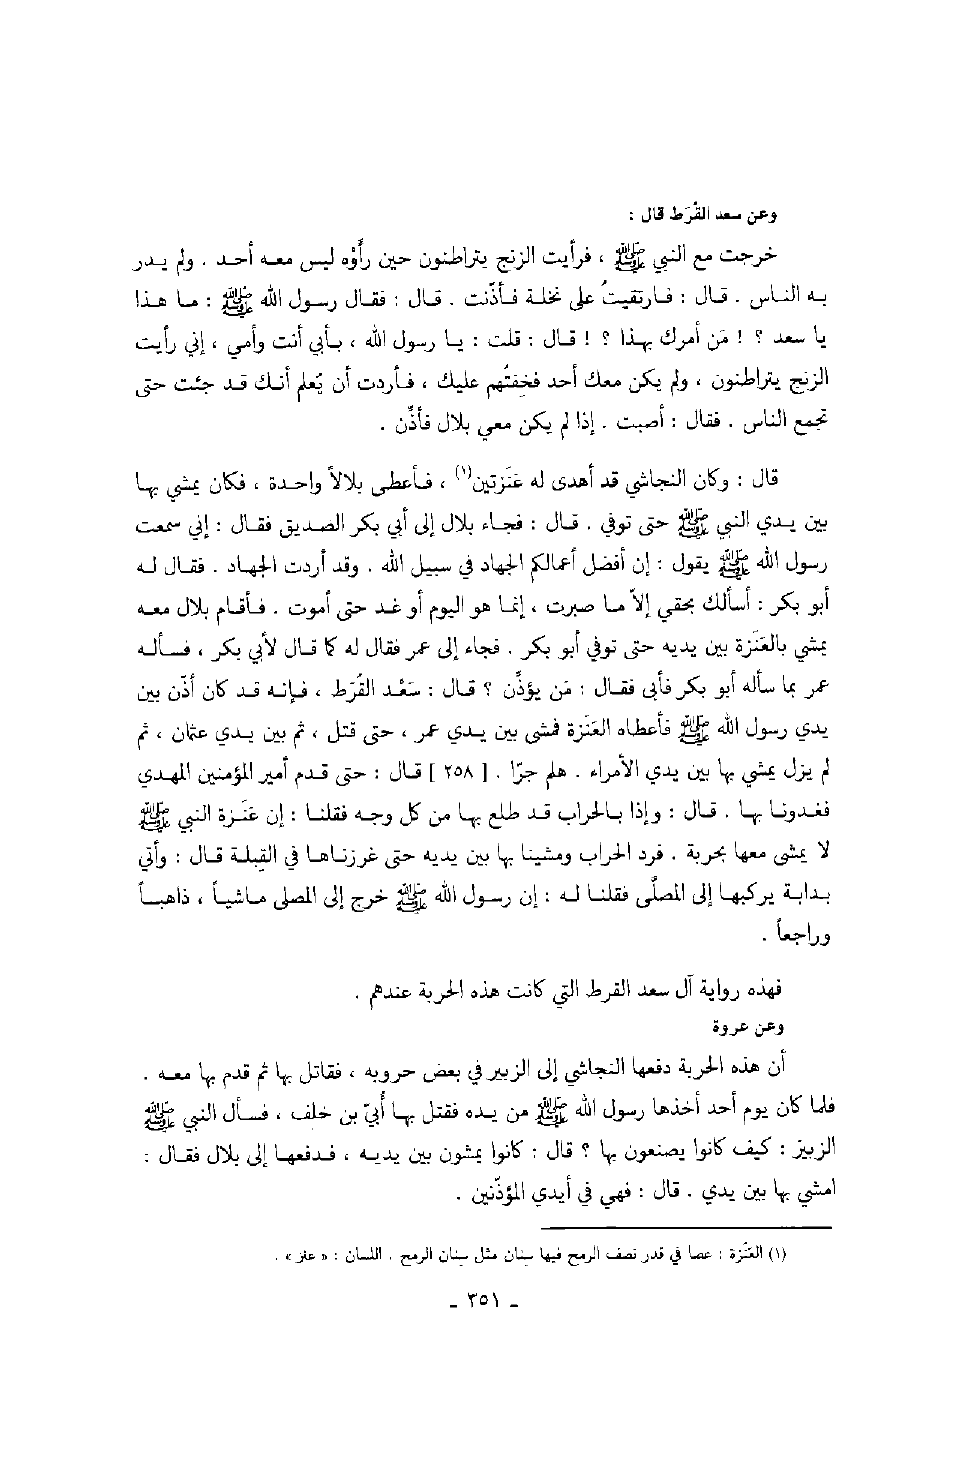 وعن سعد القُرَط قال :
خرجت مع النبي ﷺ ، فرأيت الزنج يتراطنون حين رأَوْه ليس معه أحد . ولم يدر
به الناس . قال : فارتقيتُ على نخلة فأذّنت . قال : فقال رسول الله ﷺ : ما هذا
يا سعد ؟ ! مَن أمرك بهذا ؟ ! قال : قلت : يا رسول الله ، بأبي أنت وأمي ، إني رأيت
الزنج يتراطنون ، ولم يكن معك أحد فخفتُهم عليك ، فأردت أن يُعلم أنك قد جئت حتى
تجمع الناس . فقال : أصبت . إذا لم يكن معي بلال فأذّن .
قال : وكان النجاشي قد أهدى له عَنَزتين(١) ، فأعطى بلالاً واحدة ، فكان يمشي بها
بين يدي النبي ﷺ حتى توفي . قال : فجاء بلال إلى أبي بكر الصديق فقال : إني سمعت
رسول الله ﷺ يقول : إن أفضل أعمالكم الجهاد في سبيل الله . وقد أردت الجهاد . فقال له
أبو بكر : أسألك بحقي إلاّ ما صبرت ، إنما هو اليوم أو غد حتى أموت . فأقام بلال معه
يمشي بالعَنَزة بين يديه حتى توفي أبو بكر . فجاء إلى عمر فقال له كما قال لأبي بكر ، فسأله
عمر بما سأله أبو بكر فأبى فقال : مَن يؤذّن ؟ قال : سَعْد القُرَط ، فإنه قد كان أذّن بين
يدي رسول الله ﷺ فأعطاه العَنَزة فمشى بين يدي عمر ، حتى قتل ، ثم بين يدي عثمان ، ثم
لم يزل يمشي بها بين يدي الأمراء . هلم جرّا . [ ٢٥٨ ] قال : حتى قدم أمير المؤمنين المهدي
فغدونا بها . قال : وإذا بالحراب قد طلع بها من كل وجه فقلنا : إن عَنَزة النبي ﷺ
لا يمشى معها بحربة . فرد الحراب ومشينا بها بين يديه حتى غرزناها في القبلة قال : وأتي
بدابة يركبها إلى المصلَّى فقلنا له : إن رسول الله ﷺ خرج إلى المصلى ماشياً ، ذاهباً
وراجعاً .
فهذه رواية آل سعد القرط التي كانت هذه الحربة عندهم .
وعن عروة
أن هذه الحربة دفعها النجاشي إلى الزبير في بعض حروبه ، فقاتل بها ثم قدم بها معه .
فلما كان يوم أحد أخذها رسول الله ﷺ من يده فقتل بها أُبيّ بن خلف ، فسأل النبي ﷺ
الزبير : كيف كانوا يصنعون بها ؟ قال : كانوا يمشون بين يديه ، فدفعها إلى بلال فقال :
امشي بها بين يدي . قال : فهي في أيدي المؤذّنين .
(١) العَنَزة : عصا في قدر نصف الرمح فيها سِنان مثل سِنان الرمح . اللسان : « عنز » .
- ٣٥١ -